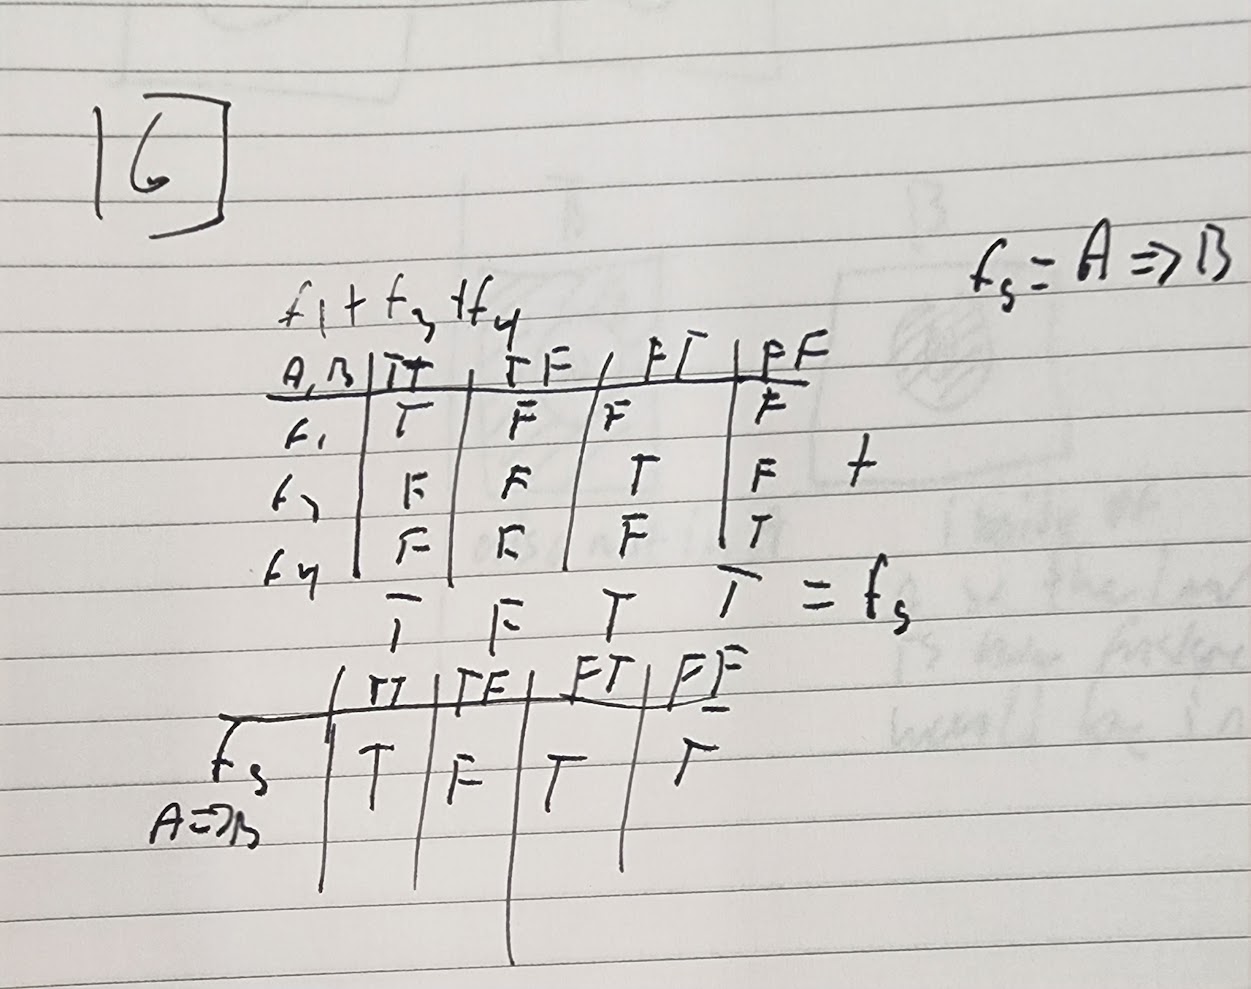 16
f5 = A => B
f1 + f3 + f4
A, B | TT | TF | FT | FF
f1 | T | F | F | F
f3 | F | F | T | F +
f4 | F | F | F | T
T F T T = f5
| TT | TF | FT | FF
f5 | T | F | T | T
A => B